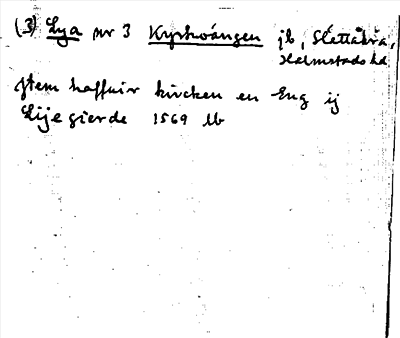 (3) Lya nr 3 Kyrkoängen jb, Slättåkra,
Halmstads hd
Jtem haffuir kircken en Eng ij
Lije gierde 1569 lb